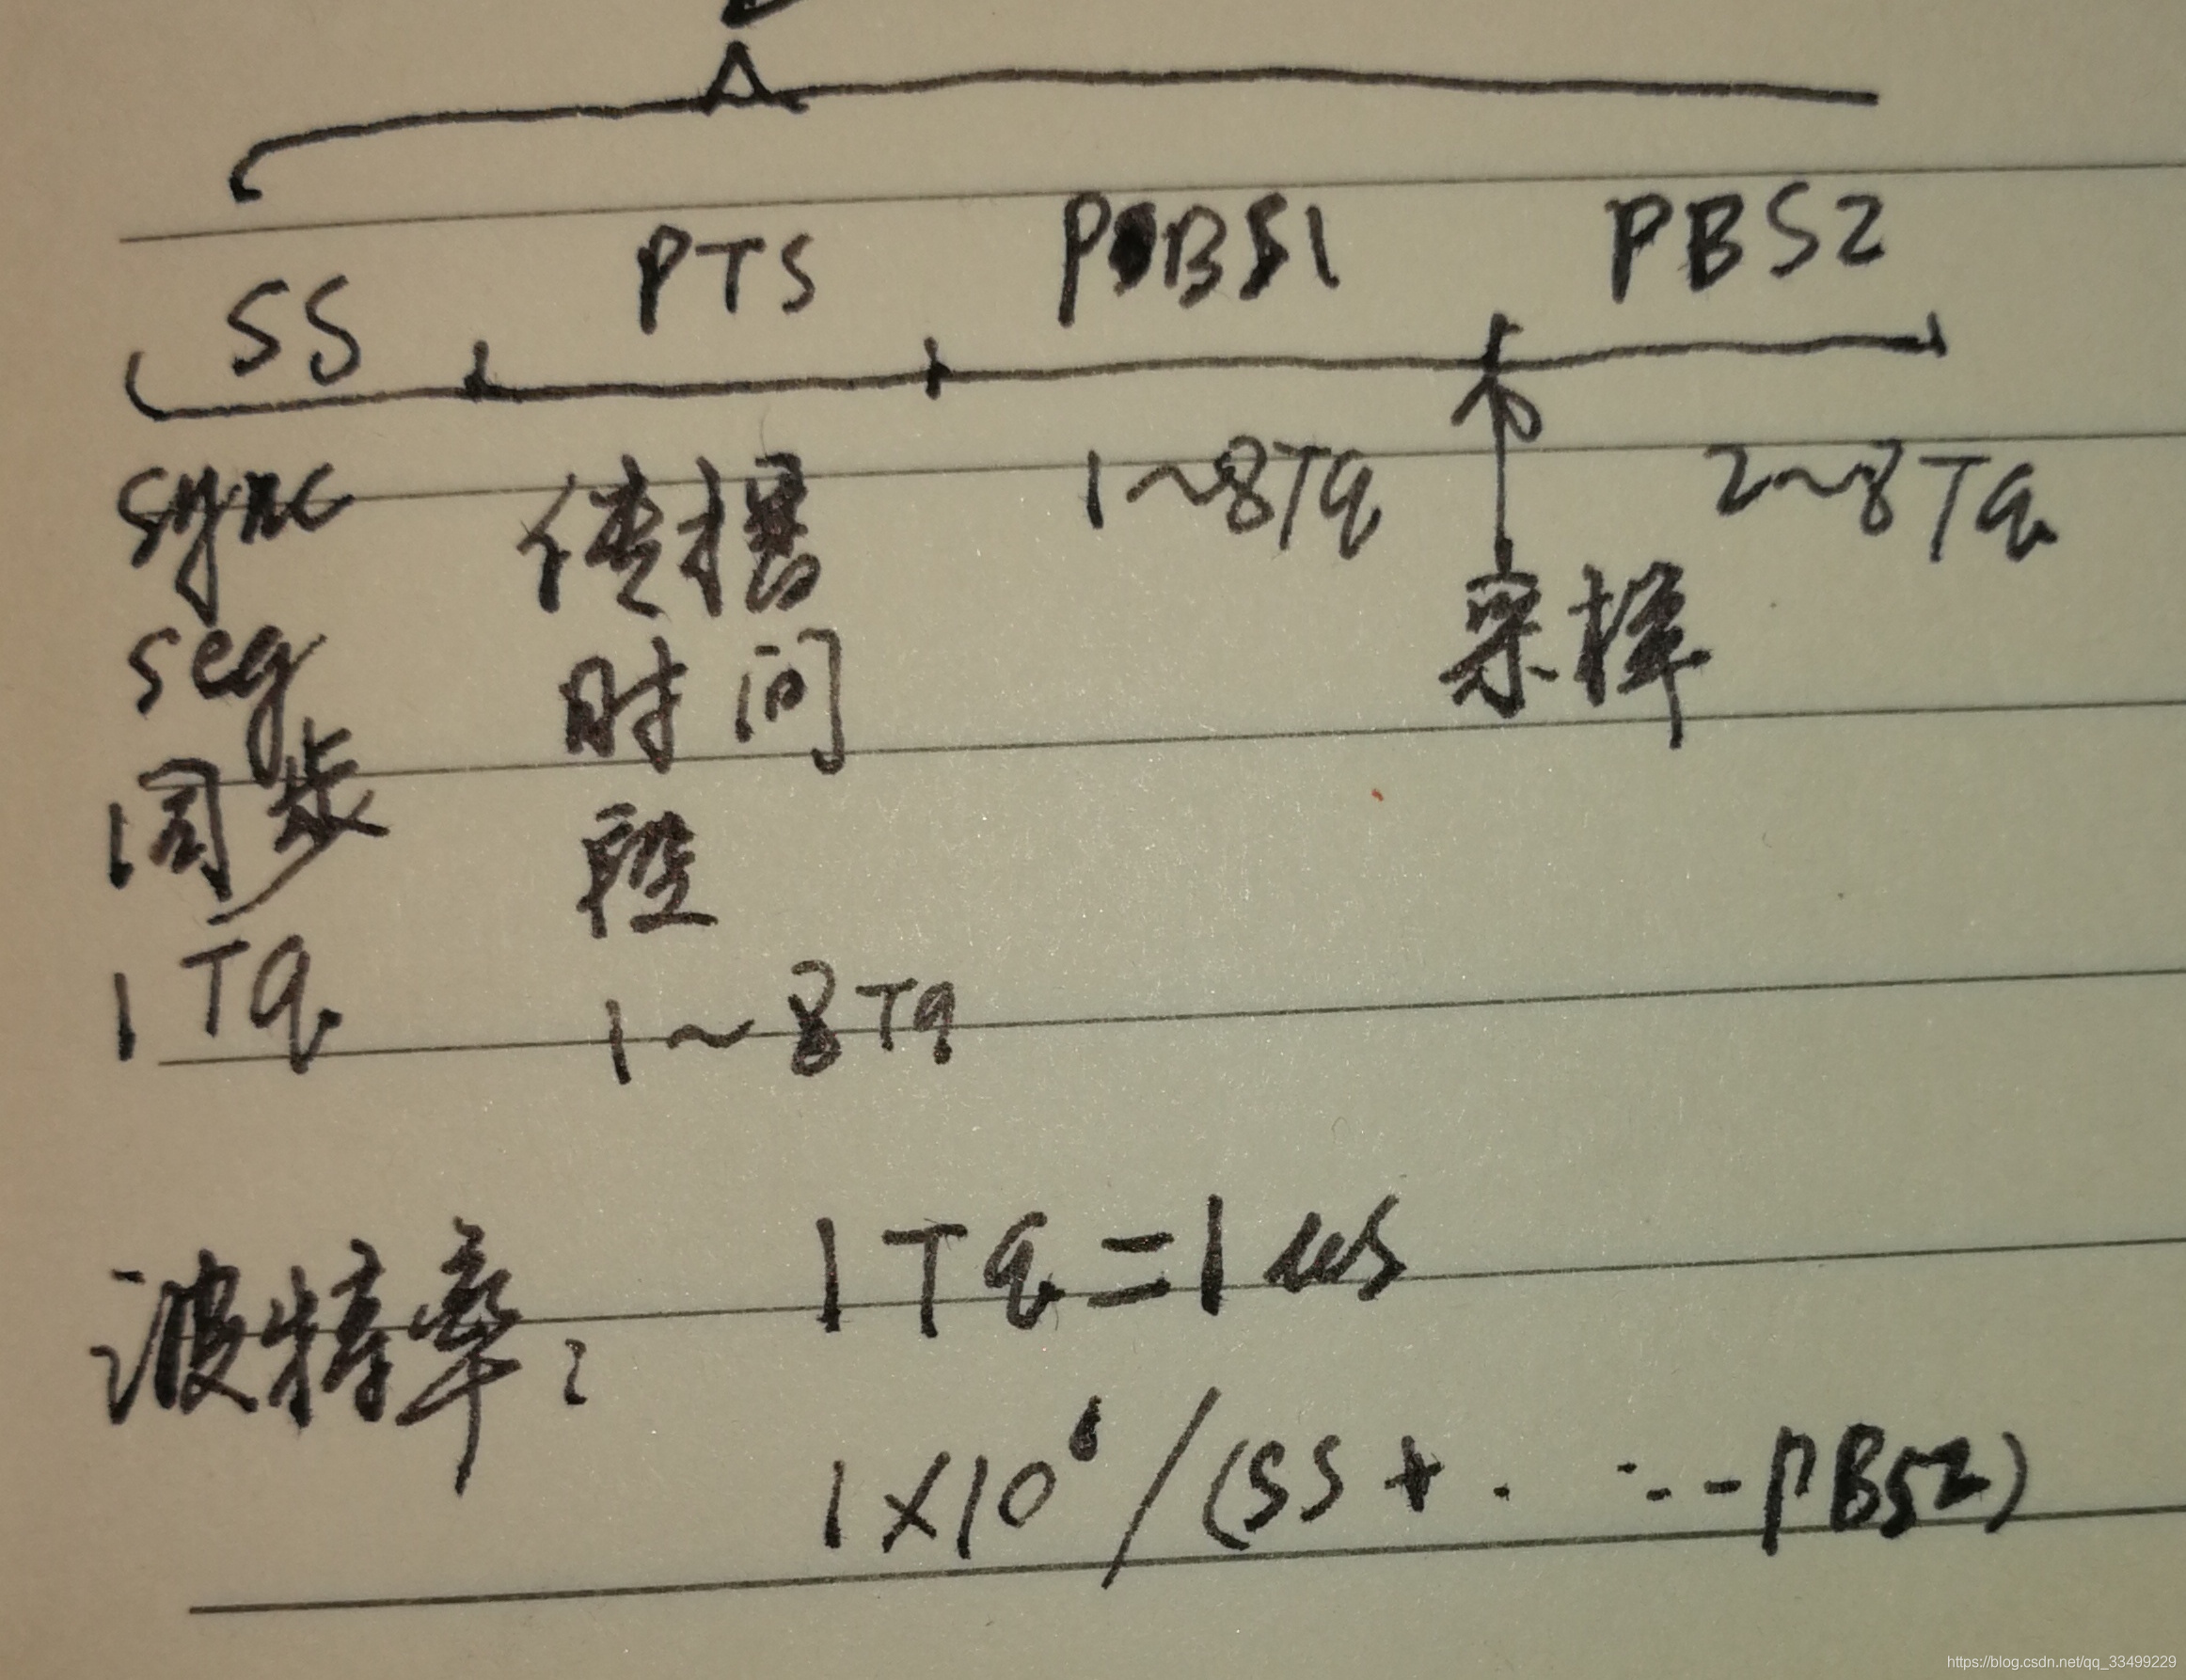 SS PTS PBS1 PBS2
sync
seg
同步
1Tq
传播
时间
段
1~8Tq
1~8Tq
采样
2~8Tq
波特率: 1Tq=1us
1×10⁶/(SS+. ..--PBS2)
https://blog.csdn.net/qq_33499229